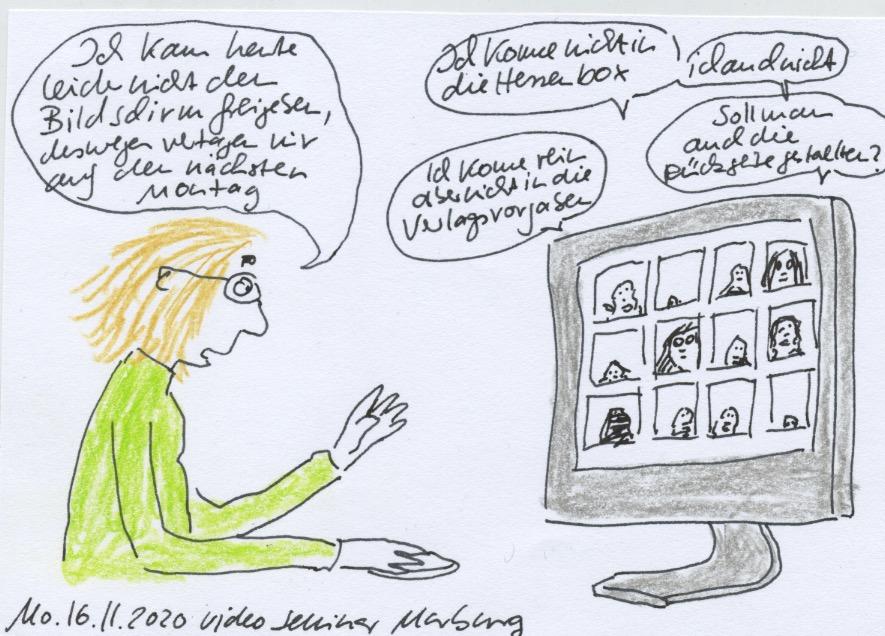 Ich kann heute
leider nicht den
Bildschirm freigeben,
deswegen vertagen wir
auf den nächsten
Montag
Ich komme nicht in
die Hessenbox
ich auch nicht
Ich komme rein
aber nicht in die
Verlagsvorgaben
Soll man
auch die
Rückseite gestallten?
Mo. 16.11.2020 video seminar Marburg